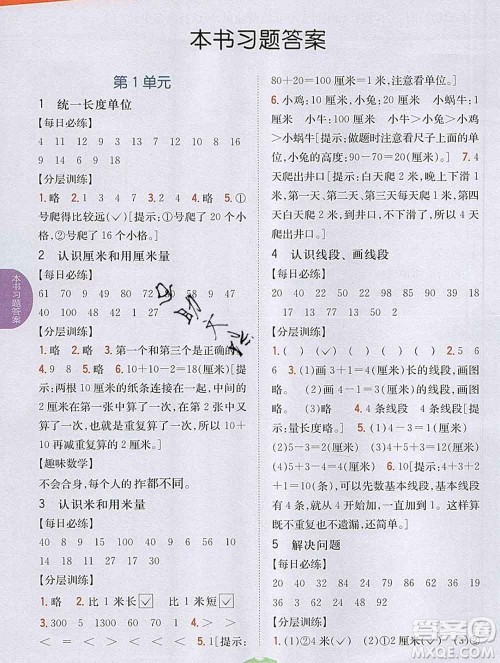 本书习题答案
第1单元
1 统一长度单位
【每日必练】
4 13 9 12 7 13 10 15 16
4 11 18 18
【分层训练】
1.略 2.略 3.略 4.略 5.①号
爬得比较远(✓)[提示:①号爬了20个小
格,②号爬了16个格。]
2 认识厘米和用厘米量
【每日必练】
61 70 49 9 29 80
40 100 48 27 1
【分层训练】
1.略 2.略 3.第一个和第三个是正确的
略 5.6 6.10+10-2=18(厘米)[提
示:两根10厘米的纸条连接在一起,中间的
2厘米在第一张中算了一次,在第二张又算
了一次,也就是重复算了一次,所以要10+
10再减重复算的2厘米。]
【趣味数学】
不会合身,每个人的一拃都不同。
3 认识米和用米量
【每日必练】
40 8 9 15 50 36 90 37 30
31 30 53 40
【分层训练】
1.略 2.略 比1米长☑ 比1米短☑
3.300 5 1 100 4.> > = >
< = < < < > 5.1[提示:
80+20=100厘米=1米,注意看单位。]
6.小鸡:100厘米,小兔:20厘米 小蜗牛:1
厘米 小牛:1米 小牛 小兔 小蜗牛
小牛>小鸡>小兔>小蜗牛
[提示:做题时注意看尺子上面的单
位,小兔的高度:90-70=20(厘米)] 7.第4
天爬出井口[提示:白天爬2米,晚上下滑1
米,第一天、第二天、第三天每天爬1米,第四
天白天爬2米,不用下滑就爬出井口了。]
4 认识线段、画线段
【每日必练】
20 40 50 95 15 22 48 24 17
32 98 51 57
【分层训练】
1.( ) ( ) (✓) ( ) (✓) 2.5 6 8
3.3+1=4(厘米) 画4厘米长的线段,画图
略。 5-1=4(厘米) 画4厘米长的线段,
画图略。 4.2条线段 4条线段 6条线段
[提示:量长度略。] 5.(1)4-1=3(厘米)
(2)5-3=2(厘米) (3)1+3=4(厘米)
(4)3+2=5(厘米) 6.10[提示:4+3+2
+1=10(条),可以先数基本线段,基本线段
有4条,第一个加数就是4,依次递减,这样数
线段不重复也不遗漏,还简单。]
5 解决问题
【每日必练】
24 32 18 34 77 62 72 19 92
94 82 60 63
【分层训练】
1.(1)②4米(✓) (2)①1厘米(✓)